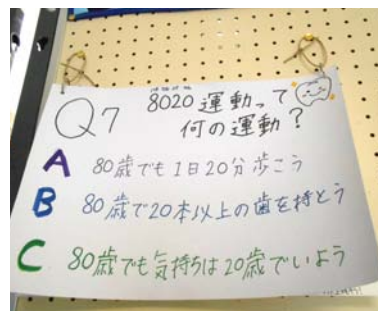 Q7 8020運動って
何の運動？
A 80歳でも1日20分歩こう
B 80歳で20本以上の歯を持とう
C 80歳でも気持ちは20歳でいよう